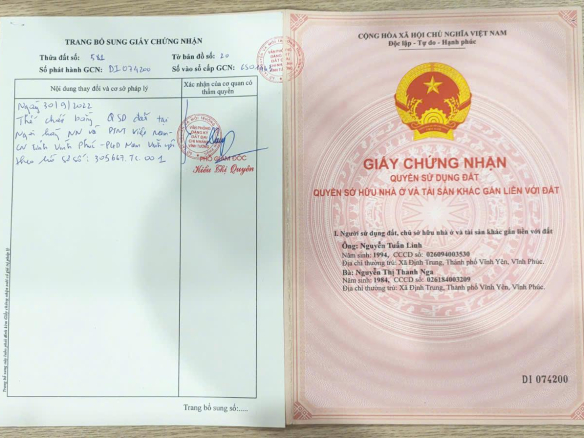 TRANG BỔ SUNG GIẤY CHỨNG NHẬN
Thửa đất số: 581 Tờ bản đồ số: 20
Số phát hành GCN: DI 074200 Số vào sổ cấp GCN:
Nội dung thay đổi và cơ sở pháp lý
Xác nhận của cơ quan có
thẩm quyền
Ngày 30/9/2022
Thế chấp bằng QSD đất tại
Ngân hàng NN và PTNT Việt Nam
CN tỉnh Vĩnh Phúc - PGD
theo hồ sơ số: 305667.TC.001
PHÓ GIÁM ĐỐC
Kiều Thị Quyên
Trang bổ sung số:.....
CỘNG HÒA XÃ HỘI CHỦ NGHĨA VIỆT NAM
Độc lập - Tự do - Hạnh phúc
VIỆT NAM
GIẤY CHỨNG NHẬN
QUYỀN SỬ DỤNG ĐẤT,
QUYỀN SỞ HỮU NHÀ Ở VÀ TÀI SẢN KHÁC GẮN LIỀN VỚI ĐẤT
I. Người sử dụng đất, chủ sở hữu nhà ở và tài sản khác gắn liền với đất
Ông: Nguyễn Tuấn Linh
Năm sinh: 1994, CCCD số: 026094003530
Địa chỉ thường trú: Xã Định Trung, Thành phố Vĩnh Yên, Vĩnh Phúc.
Bà: Nguyễn Thị Thanh Nga
Năm sinh: 1984, CCCD số: 026184003209
Địa chỉ thường trú: Xã Định Trung, Thành phố Vĩnh Yên, Vĩnh Phúc.
DI 074200